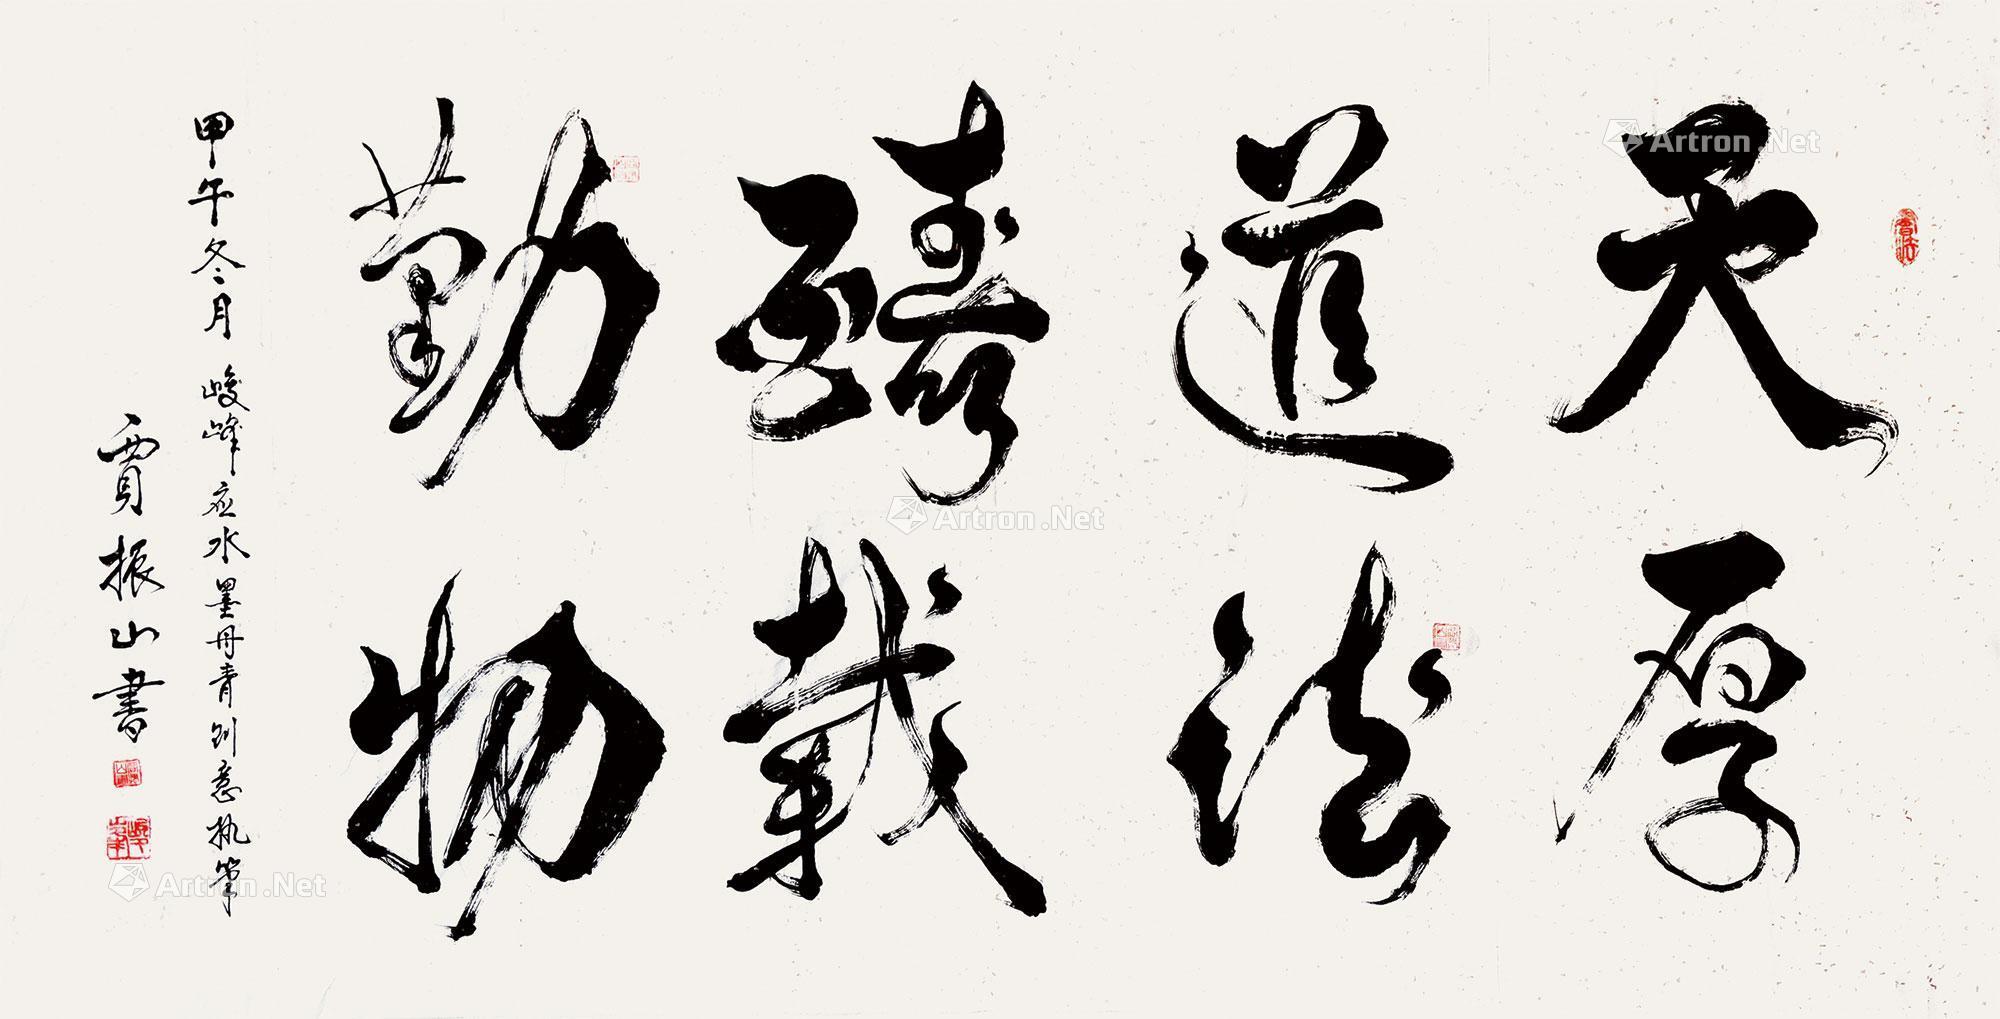 天道醻勤
厚德載物
甲午冬月 峻峰应水墨丹青意执笔
賈振山書
Artron.Net
Artron.Net
Artron.Net